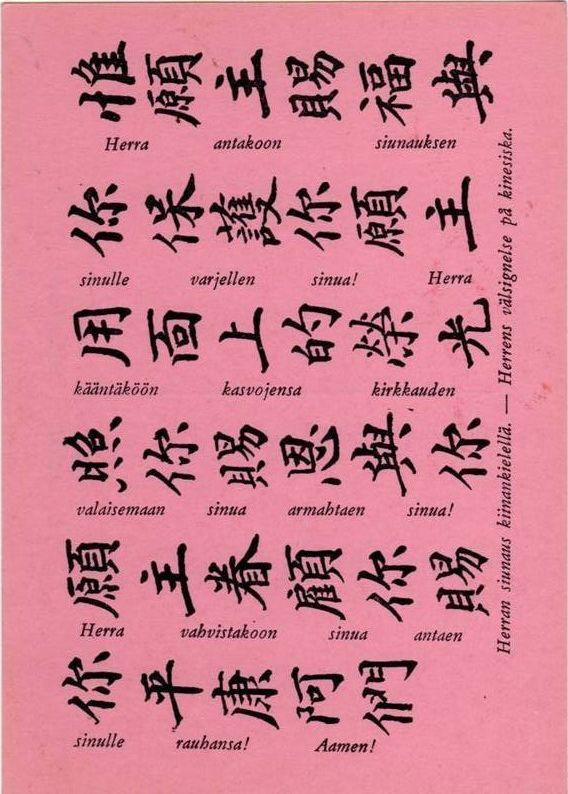 惟願主賜福與
Herra antakoon siunauksen
你保護你願主
sinulle varjellen sinua! Herra
用面上的榮光
kääntäköön kasvojensa kirkkauden
照你賜恩與你
valaisemaan sinua armahtaen sinua!
願主眷顧你賜
Herra vahvistakoon sinua antaen
你平康阿們
sinulle rauhansa! Aamen!
Herran siunaus kiinankielellä. — Herrens välsignelse på kinesiska.